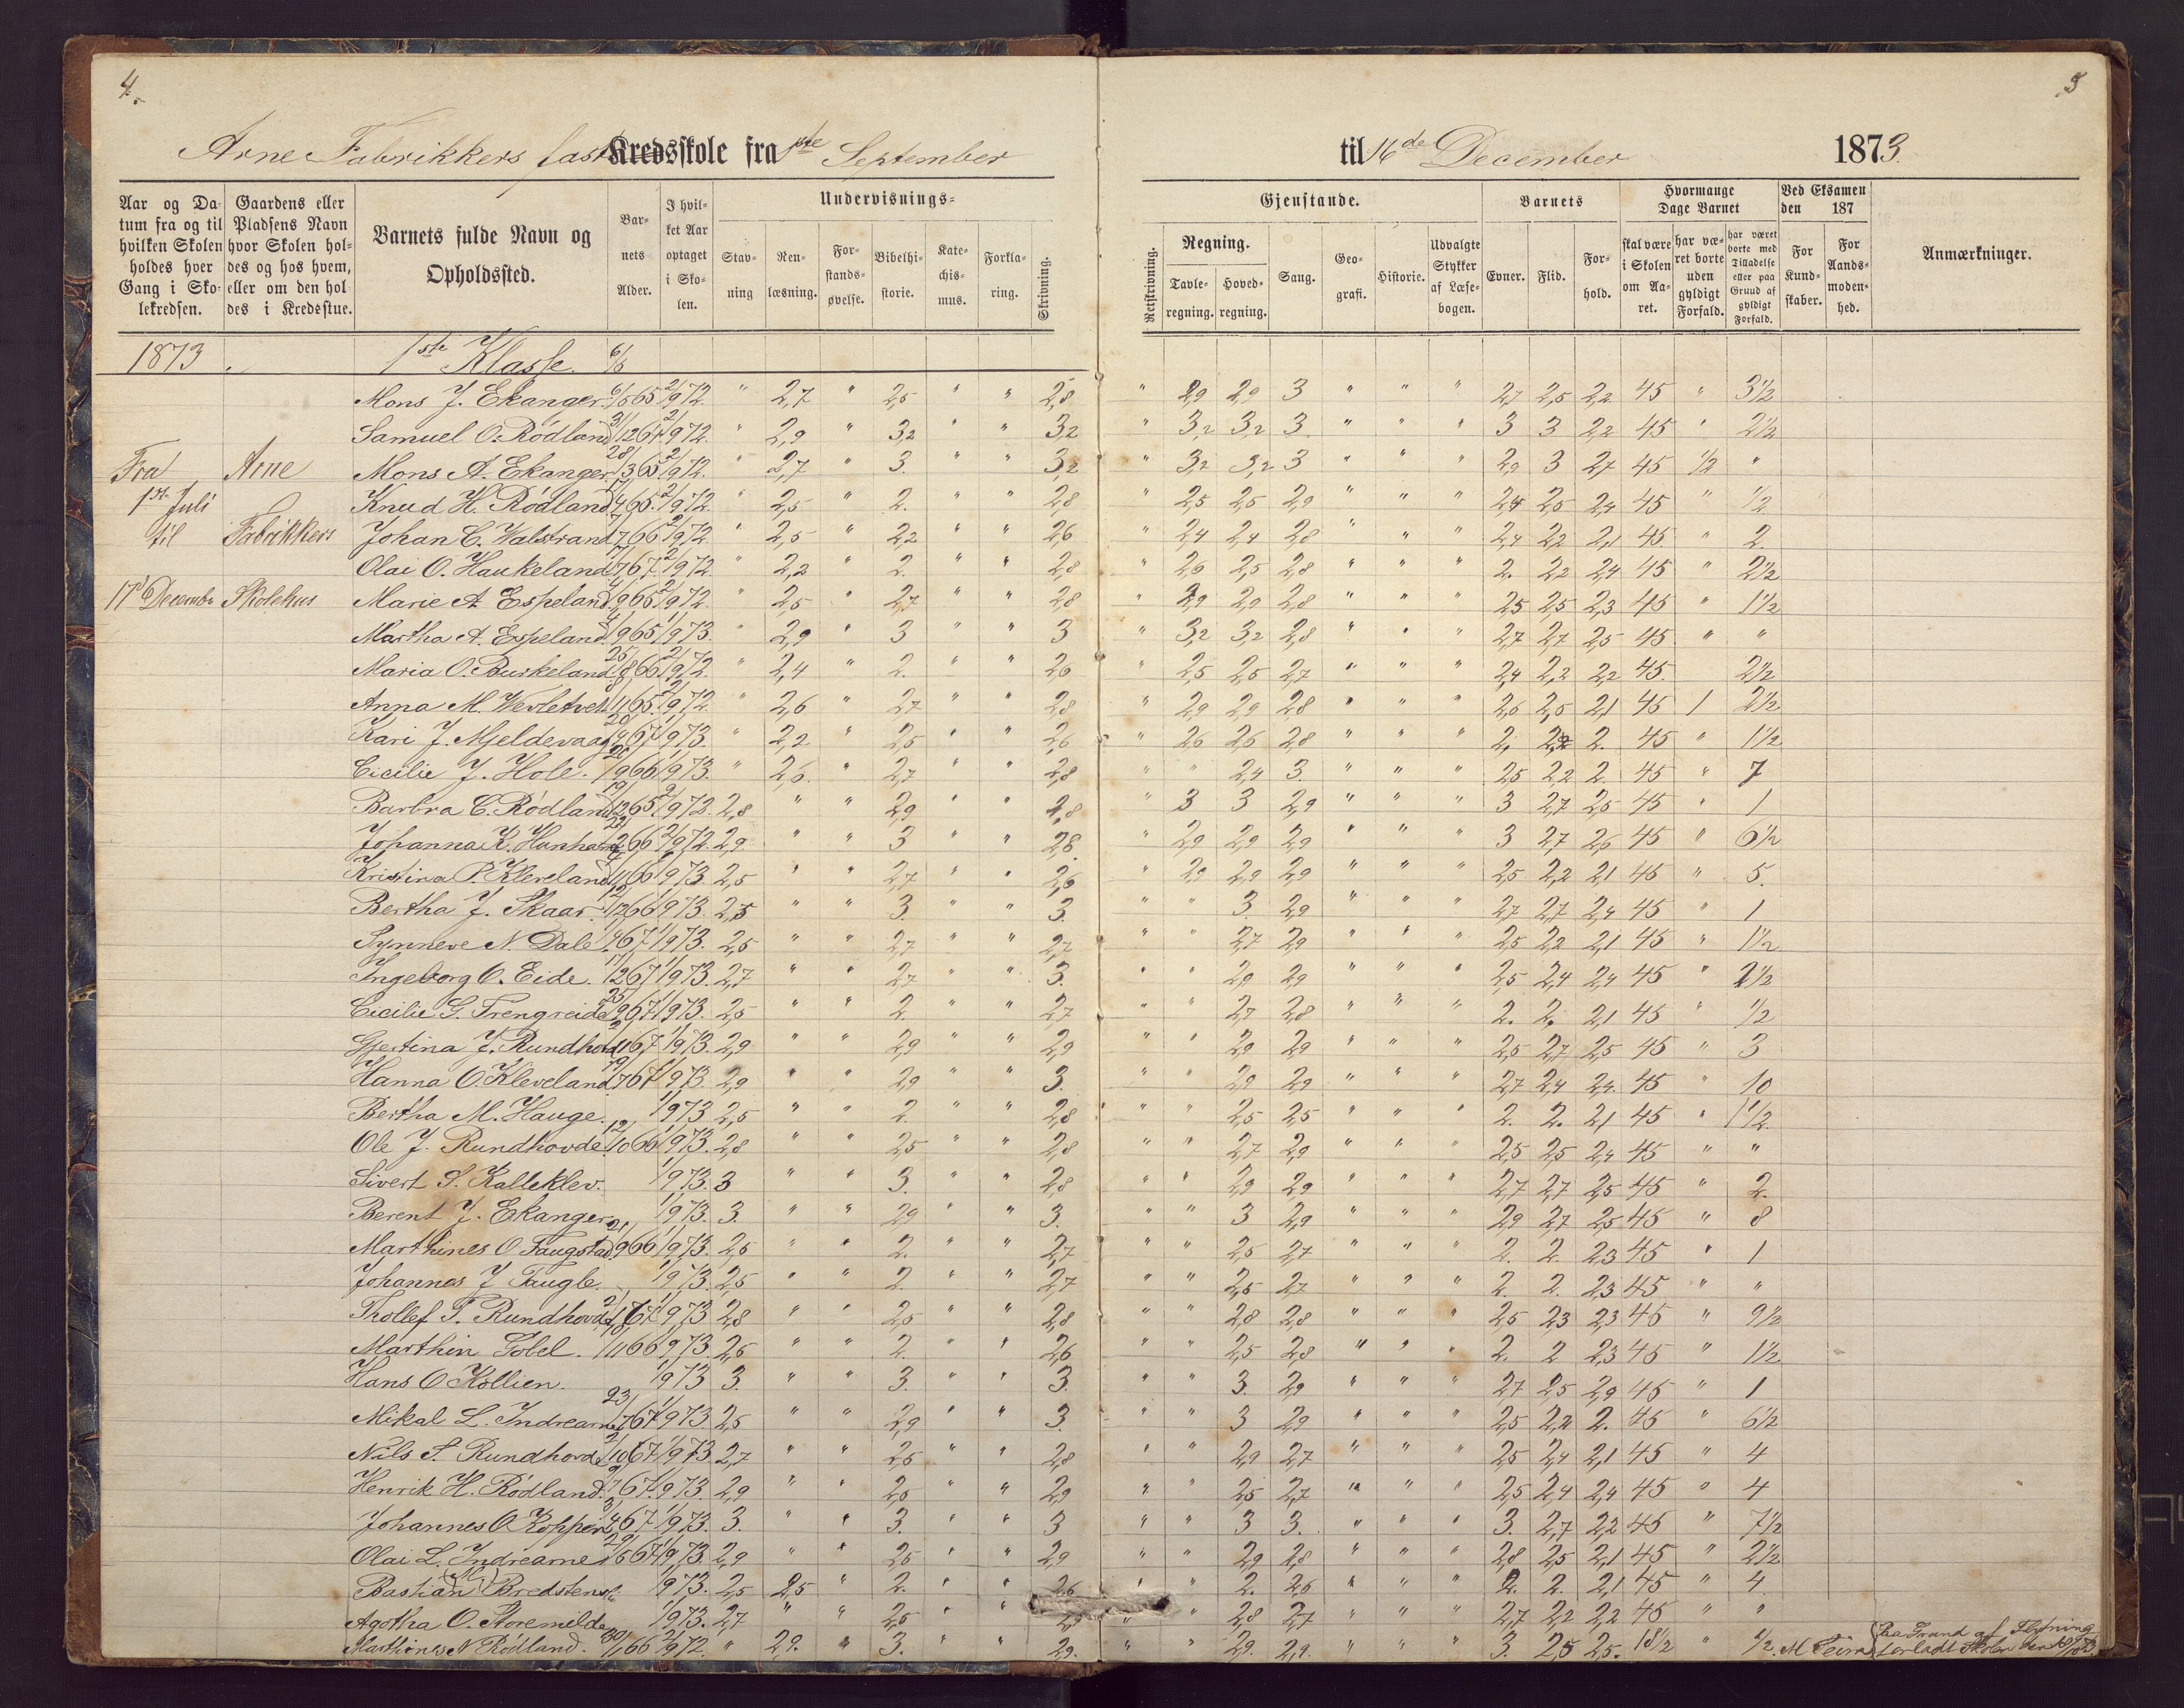 4.
5
Arne Fabrikkers fast Kredsskole fra 1ste September til 16de December 1873
Aar og Datum fra og til hvilken Skolen holdes hver Gang i Skolekredsen.
Gaardens eller Pladsens Navn hvor Skolen holdes og hos hvem, eller om den holdes i Kredsstue.
Barnets fulde Navn og Opholdssted.
Barnets Alder.
I hvilket Aar optaget i Skolen.
Undervisnings- Gjenstande.
Stavning
Renlæsning.
Forstandsøvelse.
Bibelhistorie.
Katechismus.
Forklaring.
Skrivning.
Retskrivning.
Regning.
Tavleregning.
Hovedregning.
Sang.
Geografi.
Historie.
Udvalgte Stykker af Læsebogen.
Barnets
Evner.
Flid.
Forhold.
Hvormange Dage Barnet
skal være i Skolen om Aaret.
har været borte uden gyldigt Forfald.
har været borte med Tilladelse eller paa Grund af gyldigt Forfald.
Ved Eksamen den 187
For Kundskaber.
For Aandsmodenhed.
Anmærkninger.
1873 1ste Klasse. 6/5
Mons J. Ekanger. 6/5 65 2/9 72. " 2,7 " 2,5 " " 2,8 " 2,9 2,9 3 " " " 2,7 2,5 2,2 45 " 3 1/2
Samuel O. Rødland 3/12 64 2/9 72. " 2,9 " 3,2 " " 3,2 " 3,2 3,2 3. " " " 3 3 2,2 45 " 2 1/2
Fra Arne Mons A. Ekanger 28/3 65 2/9 72. " 2,7 " 3. " " 3,2 " 3,2 3,2 3 " " " 2,9 3 2,7 45 1/2 "
1st Juli Knud H. Rødland 2/9 72. " 2,5 " 2. " " 2,8 " 2,5 2,5 2,9 " " " 2,4 2,5 2,4 45 " 1/2
til Fabrikkers Johan C. Walstrand 2/9 72. " 2,5 " 2,2 " " 2,6 " 2,4 2,4 2,8 " " " 2,4 2,2 2,1 45 " 2
Olai O. Haukeland 2/9 72 " 2,2 " 2. " " 2,8 " 2,6 2,5 2,8 " " " 2. 2,2 2,4 45 " 2 1/2
17d Decembr Skolehus Marie A. Espeland 2/9 72. " 2,5 " 2,7 " " 2,8 " 2,9 2,9 2,8 " " " 2,5 2,5 2,3 45 " 1 1/2
Martha A. Espeland 1/9 73. " 2,9 " 3 " " 3 " 3,2 3,2 2,8 " " " 2,7 2,7 2,5 45 " "
Maria O. Burkeland 25/8 66 2/9 72. " 2,4 " 2. " " 2,6 " 2,5 2,5 2,7 " " " 2,4 2,2 2,2 45. 2 1/2
Anna M. Wevletvet 2/9 72 " 2,6 " 2,7 " " 2,8 " 2,9 2,9 2,8 " " " 2,6 2,5 2,1 45 1 2 1/2
Kari J. Mjeldevaag 1/9 73. " 2,2 " 2,5 " " 2,6 " 2,6 2,6 2,8 " " " 2. 2,2 2. 45 " 1 1/2
Cicilie J. Hole. 1/9 73. " 2,5. " 2,7 " " 2,8 " " 2,4 3. " " " 2,5 2,2 2. 45 " 7
Barbra C. Rødland 19/12 65 2/9 72 2,8 " " 2,9 " " 2,8 " 3 3 2,9 " " " 3 2,7 2,5 45 " 1
Johanna K. Hanha 2/9 72. 2,9 " " 3 " " 2,8. " 2,9 2,9 2,9 " " " 3 2,7 2,6 45 " 6 1/2
Kristina P. Kleveland 1/9 73 2,5 " " 2,7 " " 2,6 " 2,9 2,9 2,9 " " " 2,5 2,2 2,1 45 " 5.
Bertha J. Skaar. 12/12 66 1/9 73. 2,5 " " 3. " " 3. " " 3. 2,9 " " " 2,7 2,7 2,4 45 " 1
Synneve N. Dale 1/9 73. 2,5 " " 2,7 " " 2,7 " " 2,7 2,9 " " " 2,5 2,2 2,1 45 " 1 1/2
Ingeborg O. Eide. 1/9 73. 2,7 " " 2,7 " " 3. " " 2,9 2,9 " " " 2,5 2,4 2,4 45 " 2 1/2
Cicilie G. Trengreid 25/9 67 1/9 73. 2,5 " " 2. " " 2,7 " " 2,7 2,8 " " " 2. 2. 2,1 45 " 1/2
Gjertina J. Rundhovd 1/9 73. 2,9 " " 2,9 " " 2,9 " " 2,9 2,9 " " " 2,5 2,7 2,5 45 " 3
Hanna O. Kleveland 19/7 67 1/9 73. 2,9 " " 2,9 " " 3. " " 2,9 2,9 " " " 2,7 2,4 2,4. 45 " 10
Bertha M. Hauge. 1/9 73 2,5 " " 2. " " 2,8 " " 2,5 2,5 " " " 2. 2. 2,1 45 " 1 1/2
Ole J. Rundhovde 12/10 66 1/9 73. 2,8 " " 2,5 " " 2,8 " " 2,7 2,9 " " " 2,5 2,5 2,4 45 " "
Sivert S. Kalleklev. 1/9 73. 3 " " 3. " " 2,8 " " 2,9 2,9 " " " 2,7 2,7 2,5 45 " 2.
Berent J. Ekanger 1/9 73. 3. " " 2,9 " " 3. " " 3 2,9 " " " 2,9 2,7 2,5 45 " 8
Marthines O. Faugstad 21/9 66 1/9 73. 2,5 " " 2. " " 2,7 " " 2,5 2,7 " " " 2. 2. 2,3 45 " 1
Johannes J Faugle. 1/9 73. 2,5 " " 2. " " 2,7 " " 2,5 2,7 " " " 2. 2. 2,3 45 " "
Thollef T. Rundhovd 1/9 73 2,8 " " 2,5 " " 2,8 " " 2,8 2,8 " " " 2,5 2,3 2,3 45 " 9 1/2
Marthin Gobel. 1/9 73. 2,5 " " 2. " " 2,6 " " 2,5 2,8 " " " 2. 2 2,3 45 " 1 1/2
Hans O Kollien. 1/9 73 3. " " 3. " " 3. " " 3. 2,9 " " " 2,7 2,5 2,9 45 " 1
Mikal L. Indrearne 23/7 67 1/9 73 2,5 " " 2,9 " " 3. " " 3 2,9 " " " 2,5 2,2 2. 45 " 6 1/2
Nils S. Rundhovd 2/10 67 1/9 73 2,7 " " 2,5 " " 2,8 " " 2,9 2,7 " " " 2,5 2,4 2,1 45 " 4
Henrik H. Rødland 9/7 67 1/9 73. 2,9 " " 2,5 " " 2,9 " " 2,5 2,7 " " " 2,5 2,4 2,4 45 " 4
Johannes O Koppen 1/9 73. 3. " " 3. " " 3 " " 3 3. " " " 3. 2,7 2,2 45 " 7 1/2
Olai L. Indrearne 1/9 73. 2,9 " " 2,5 " " 2,9 " " 2,9 2,8 " " " 2,8 2,5 2,1 45 " 2 1/2
Bastian (M.) Bredstensli 1/9 73. 2,5 2,5 " 2. " " 2,6 " " 2. 2,6 " " " 2. 2. 2,1 45 " 4
Agotha O. Storemelde 1/9 73. 2,7 " " 2,5 " " " " 2,8 2,7 " " " 2,7 2,2 2,2 45 " "
Marthines N Rødland. 30/1 66 2/9 72. " 2,9. " 3. " " 2,9. " " 2,9. 2,9. " " " 3. 2,5 2,5. 18 1/2 " 1/2. M Seim (Paa Grund af Flytning forladt Skolen den